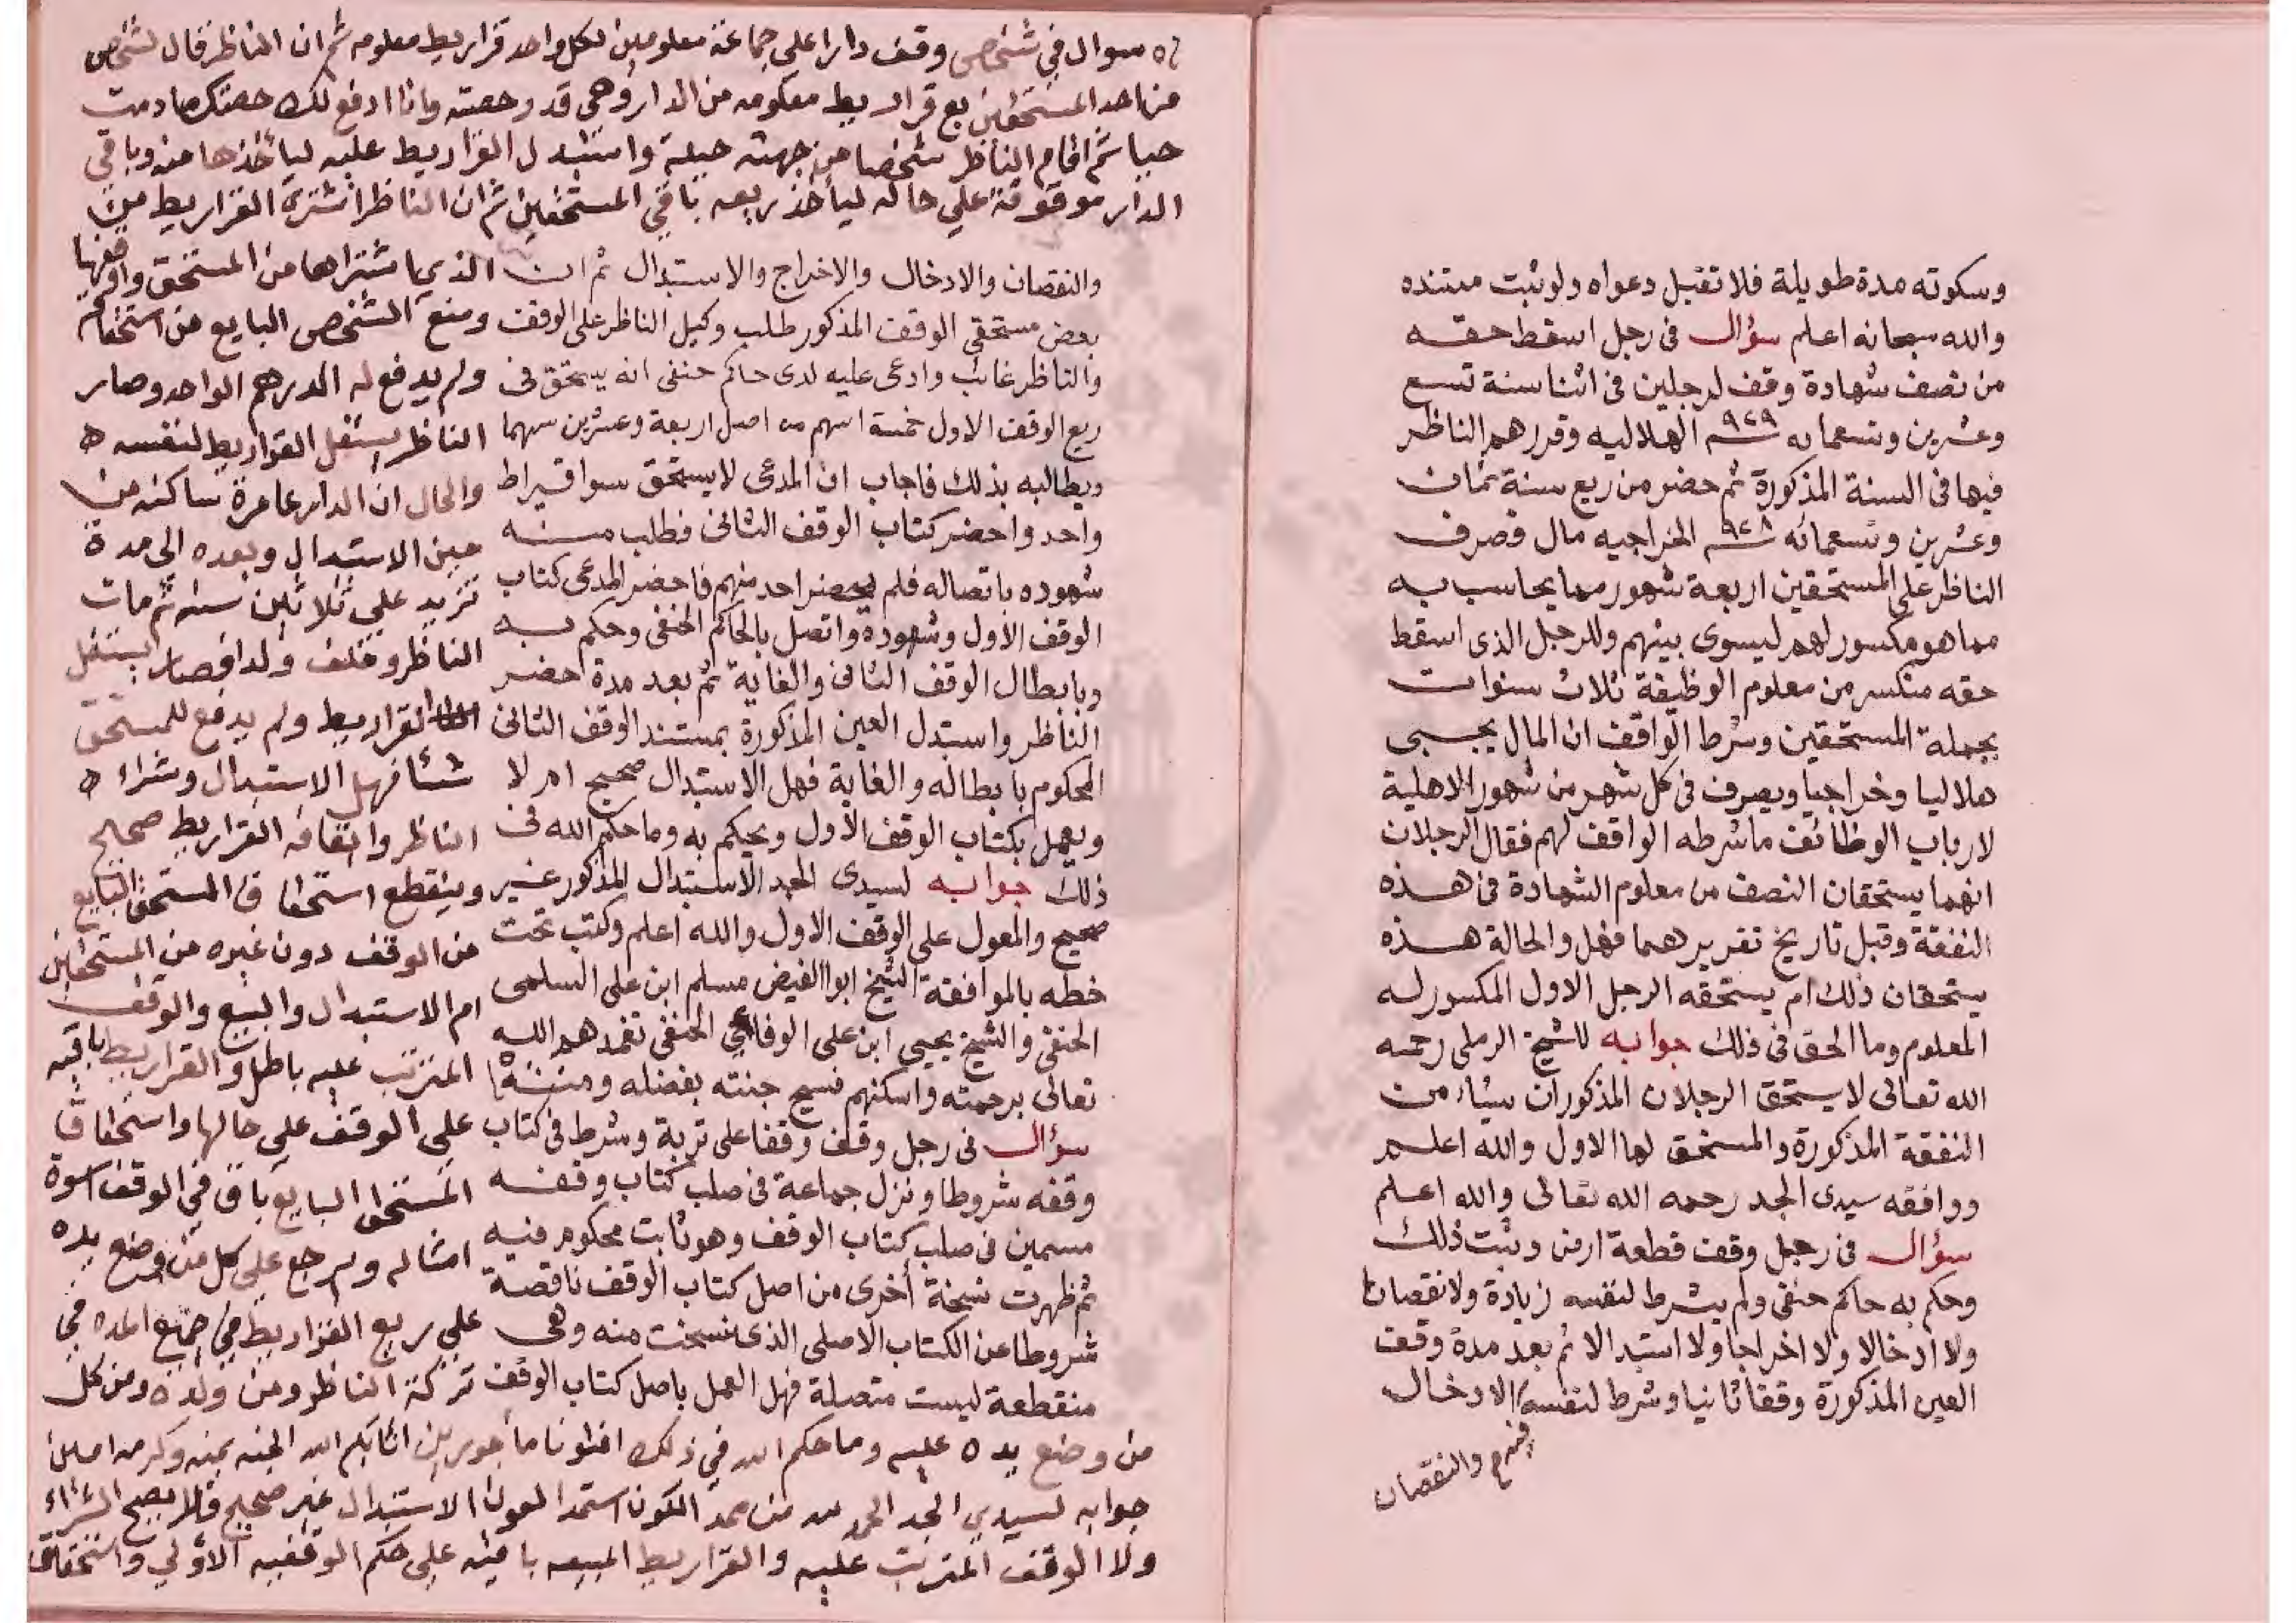 وسكوته مدة طويلة فلا تقبل دعواه ولو ثبت مستنده
والله سبحانه اعلم سؤال فى رجل اسقط حقه
من نصف شهادة وقف لرجلين فى اثنا سنة تسع
وعشرين وتسعمايه ٩٢٩ الهلاليه وقررهم الناظر
فيها فى السنة المذكورة ثم حضر من ريع سنة ثمان
وعشرين وتسعمائه ٩٢٨ الخراجيه مال فصرف
الناظر على المستحقين اربعة شهور مما يحاسب به
مما هو مكسور لهم ليسوى بينهم وللرجل الذى اسقط
حقه منكسر من معلوم الوظيفة ثلاث سنوات
بجملة المستحقين وشرط الواقف ان المال يجبى
هلاليا وخراجيا ويصرف فى كل شهر من شهور الاهلية
لارباب الوظائف ما شرطه الواقف لهم فقال الرجلان
انهما يستحقان النصف من معلوم الشهادة فى هذه
النفقة وقبل تاريخ تقريرهما فهل والحالة هذه
يستحقان ذلك ام يستحقه الرجل الاول المكسور له
المعلوم وما الحق فى ذلك جوابه للشيخ الرملى رحمه
الله تعالى لا يستحق الرجلان المذكوران شياء من
النفقة المذكورة والمستحق لها الاول والله اعلم
ووافقه سيدى الجد رحمه الله تعالى والله اعلم
سؤال فى رجل وقف قطعة ارض وثبت ذلك
وحكم به حاكم حنفى ولم يشرط لنفسه زيادة ولا نقصانا
ولا ادخالا ولا اخراجا ولا استبدالا ثم بعد مدة وقف
العين المذكورة وقفا ثانيا وشرط لنفسه الادخال
والنقصان
والنقصان والادخال والاخراج والاستبدال ثم ان
بعض مستحقى الوقف المذكور طلب وكيل الناظر على الوقف
والناظر غائب وادعى عليه لدى حاكم حنفى انه يستحق فى
ريع الوقف الاول خمسة اسهم من اصل اربعة وعشرين سهما
ويطالبه بذلك فاجاب ان المدعى لا يستحق سوا قيراط
واحد واحضر كتاب الوقف الثانى فطلب منه
شهوده باتصاله فلم يحضر احد منهم فاحضر المدعى كتاب
الوقف الاول وشهوده واتصل بالحاكم الحنفى وحكم به
وبابطال الوقف الثانى والغاية ثم بعد مدة احضر
الناظر واستبدل العين المذكورة بمستند الوقف الثانى
المحكوم بابطاله والغاية فهل الاستبدال صحيح ام لا
ويعمل بكتاب الوقف الاول ويحكم به وما حكم الله فى
ذلك جوابه لسيدى الجد الاستبدال المذكور غير
صحيح والمعول على الوقف الاول والله اعلم وكتب تحت
خطه بالموافقة الشيخ ابوا الفيض مسلم ابن على السلمى
الحنفى والشيخ يحيى ابن على الوفاءى الحنفى تغمدهم الله
تعالى برحمته واسكنهم فسيح جنته بفضله ومنته
سؤال فى رجل وقف وقفا على تربة وشرط فى كتاب
وقفه شروطا ونزل جماعة فى صلب كتاب وقفه
مسمين فى صلب كتاب الوقف وهو ثابت محكوم فيه
ثم ظهرت نسخة أخرى من اصل كتاب الوقف ناقصة
شروطا عن الكتاب الاصلى الذى نسخت منه وهى
منقطعة ليست متصلة فهل العمل باصل كتاب الوقف
سوال في شخص وقف دارا على جماعة معلومين لكل واحد قراريط معلومه ثم ان الناظر قال لشخص
من احد المستحقين بع قراريط معلومه من الدار وهى قدر حصته وانا ادفع لك حصتك ما دمت
حيا ثم اقام الناظر شخصا من جهته حيلة واستبدل القراريط عليه لياخذها منه وباقي
الدار موقوفة علي حاله لياخذ ريعه باقي المستحقين ثم ان الناظر اشترى القراريط من
الذى اشتراها من المستحق واوقفها
ومنع الشخص البايع من استحقاقه
ولم يدفع له الدرهم الواحد وصار
الناظر يستغل القراريط لنفسه
والحال ان الدار عامرة ساكنه من
حين الاستبدال وبعده الى مدة
تزيد علي ثلاثين سنه ثم مات
الناظر وخلف ولدا فصار يستغل
القراريط ولم يدفع للمستحق
شئا فهل الاستبدال وشراء
الناظر وايقافه القراريط صحيح
وينقطع استحقاق المستحق البايع
من الوقف دون غيره من المستحقين
ام الاستبدال والبيع والوقف
المترتب عليه باطل والقراريط باقيه
على الوقف على حالها واستحقاق
المستحق البايع باق في الوقف اسوة
امثاله ويرجع علي كل من وضع يده
علي ريع القراريط في جميع المده في
تركة الناظر ومن ولده ومن كل
من وضع يده عليه وما حكم الله في ذلك افتونا ماجورين اثابكم الله الجنه بمنه وكرمه امين
جوابه لسيدي الجد الحمد لله من ممد الكون استمد العون الاستبدال غير صحيح فلا يصح الشراء
ولا الوقف المترتب عليه والقراريط المبيعه باقيه على حكم الوقفيه الاولي واستحقاق